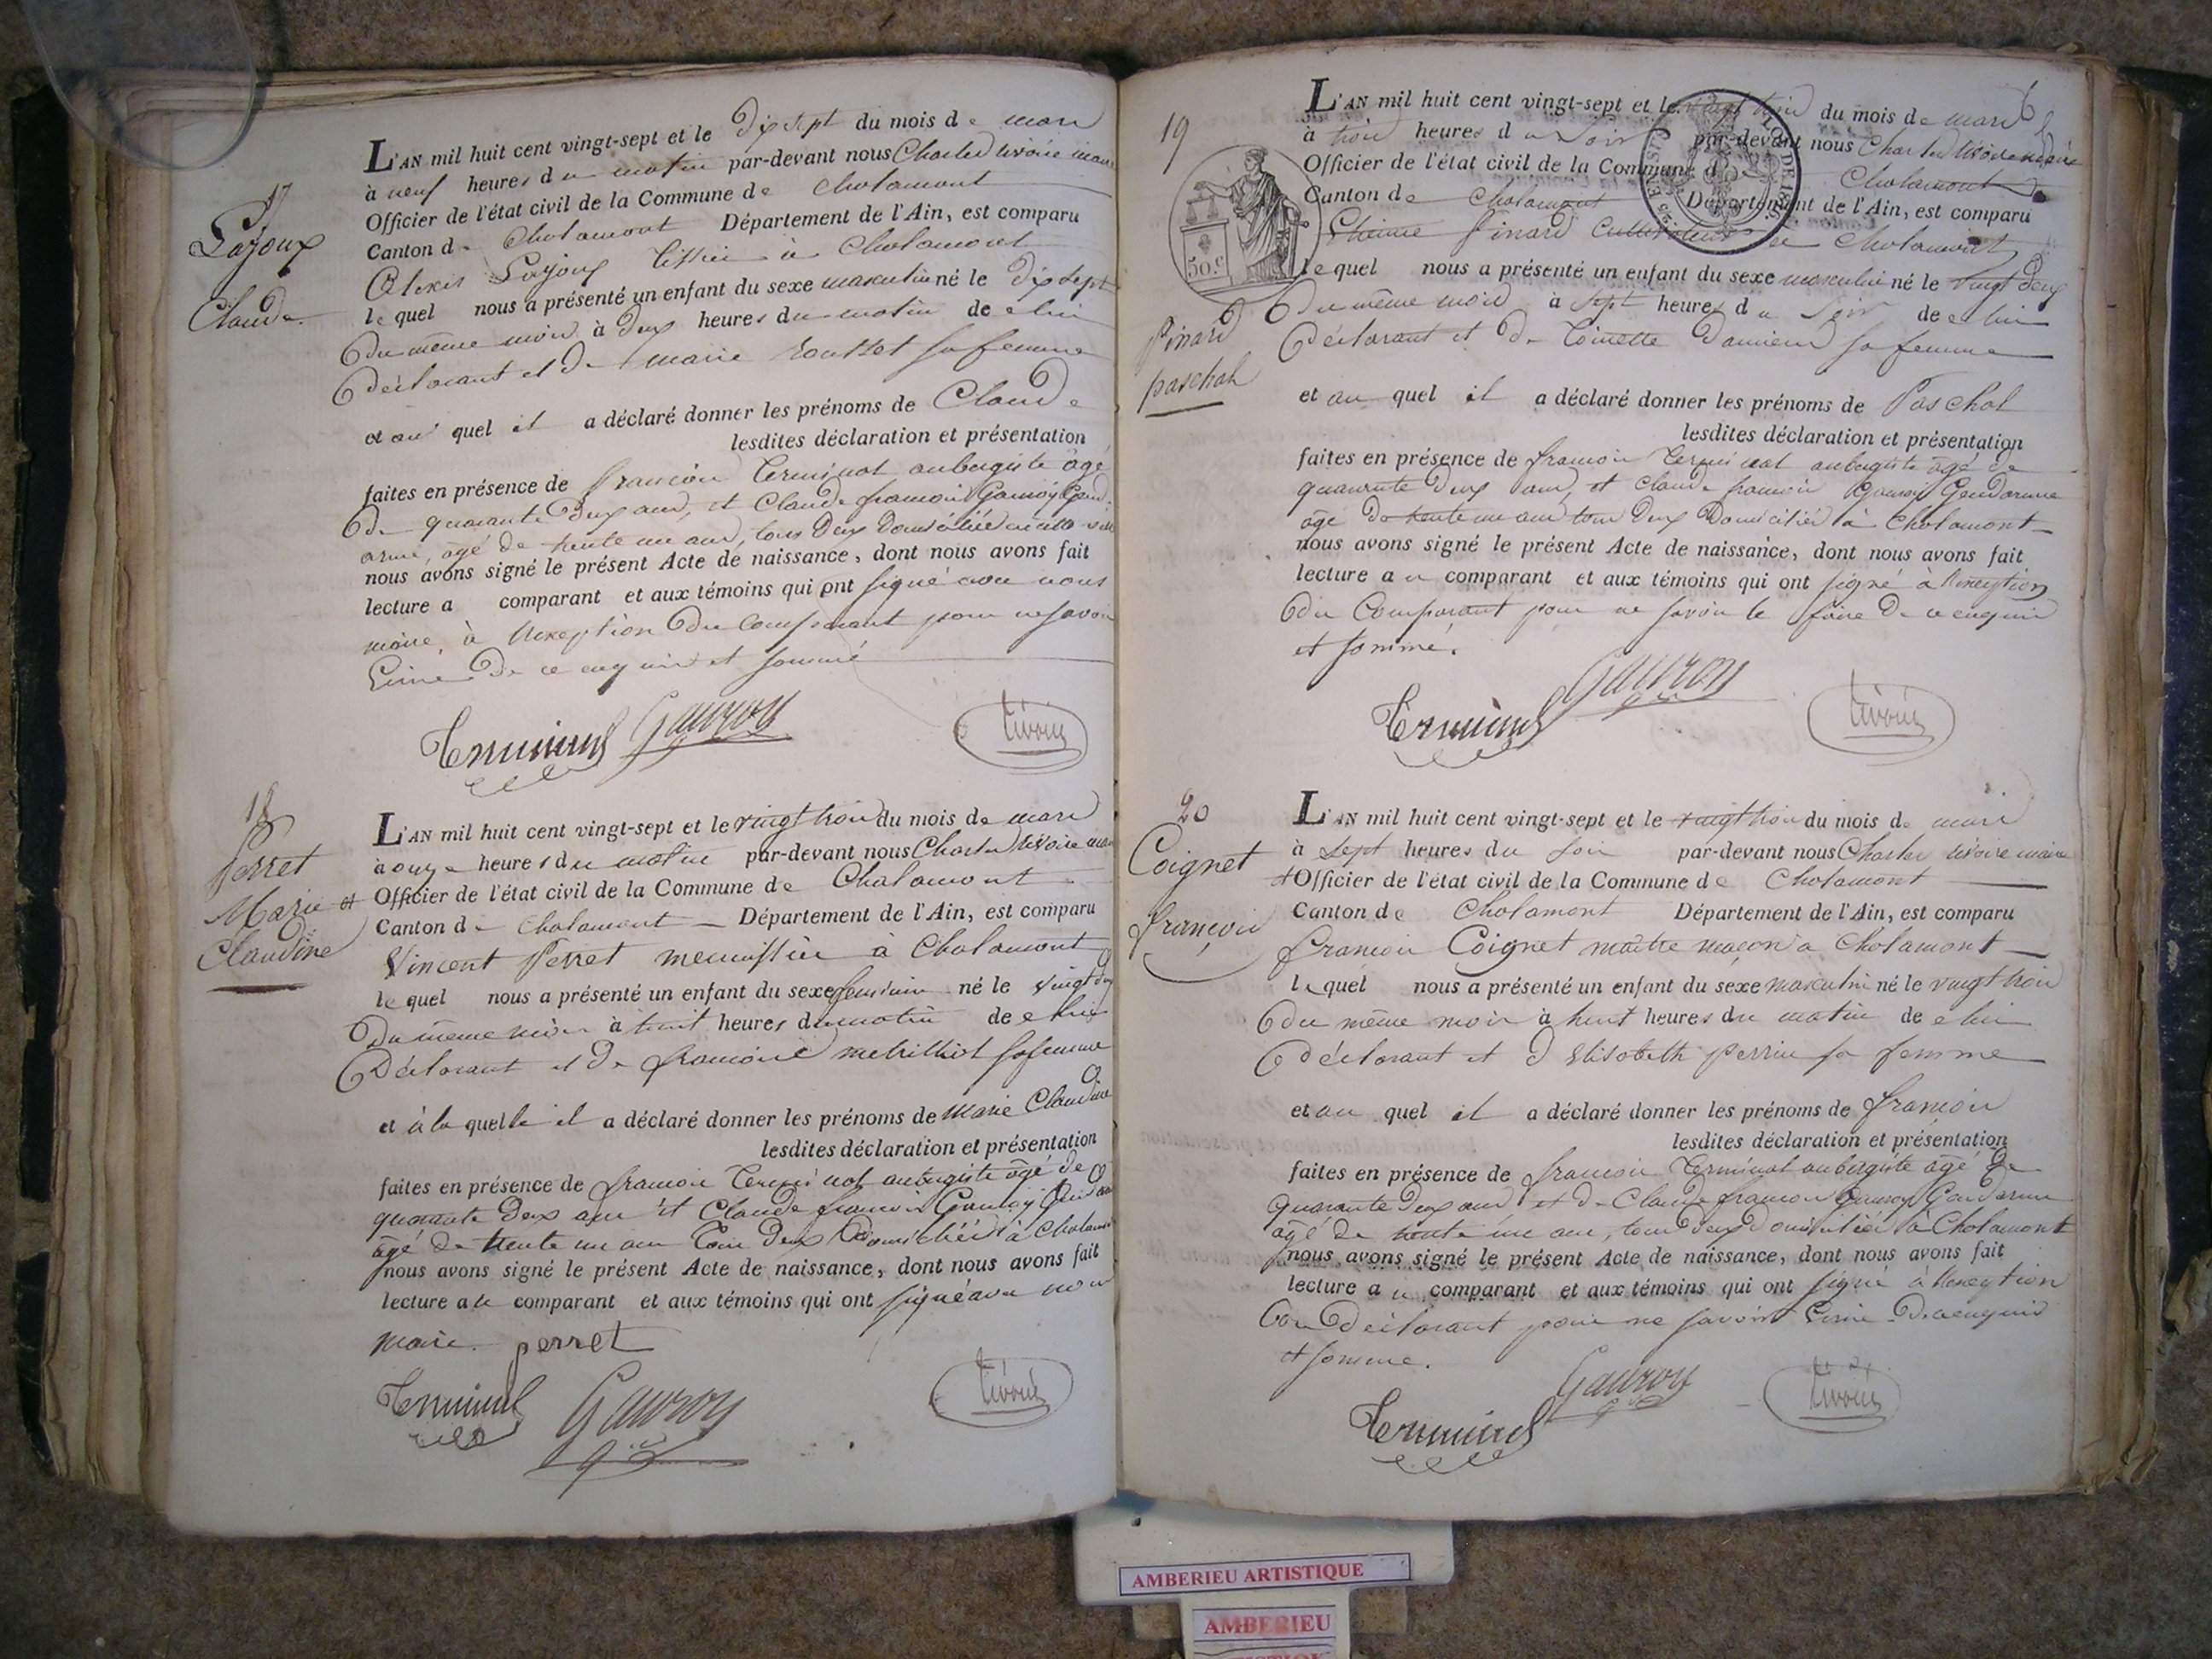 17
Lajoux
Claude
L'AN mil huit cent vingt-sept et le dix sept du mois de mars
à neuf heures du matin par-devant nous Charles tivoire maire
Officier de l'état civil de la Commune de Chalamont
Canton de Chalamont Département de l'Ain, est comparu
Alexis Lajoux tissier à Chalamont
lequel nous a présenté un enfant du sexe masculin né le dix sept
du même mois à deux heures du matin de lui
déclarant et de marie sa femme
et au quel il a déclaré donner les prénoms de Claude
lesdites déclaration et présentation
faites en présence de françois Terminal aubergiste âgé
de quarante deux ans, et Claude françois Gauroy Gend-
arme, âgé de trente un ans, tous deux domiciliés
nous avons signé le présent Acte de naissance, dont nous avons fait
lecture a comparant et aux témoins qui ont signé avec nous
maire, à l'exception du comparant pour ne savoir
de ce enquis et sommé
Terminal Gauroy tivoire
18
Perret
Marie et
Claudine
L'AN mil huit cent vingt-sept et le vingt trois du mois de mars
à onze heures du matin par-devant nous Charles tivoire maire
Officier de l'état civil de la Commune de Chalamont
Canton de Chalamont Département de l'Ain, est comparu
Vincent Perret menuisier à Chalamont
lequel nous a présenté un enfant du sexe feminin né le vingt
du même mois à huit heures du matin de lui
Déclarant et de françoise sa femme
et à la quelle il a déclaré donner les prénoms de Marie Claudine
lesdites déclaration et présentation
faites en présence de françois Terminal aubergiste âgé de
quarante deux ans et Claude françois Gauroy Gendarme
âgé de trente un ans tous deux domiciliés à Chalamont
nous avons signé le présent Acte de naissance, dont nous avons fait
lecture au comparant et aux témoins qui ont signé avec nous
maire. perret
Terminal Gauroy tivoire
19
50.c
Pinard
paschal
L'AN mil huit cent vingt-sept et le vingt trois du mois de mars
à trois heures du soir par-devant nous Charles tivoire maire
Officier de l'état civil de la Commune de Chalamont
Canton de Chalamont Département de l'Ain, est comparu
Etienne Pinard cultivateur de Chalamont
lequel nous a présenté un enfant du sexe masculin né le vingt deux
du même mois à sept heures du soir de lui
Déclarant et de Toinette Damien sa femme
et au quel il a déclaré donner les prénoms de Paschal
lesdites déclaration et présentation
faites en présence de françois Terminal aubergiste âgé de
quarante deux ans, et claude françois Gauroy Gendarme
âgé de trente un ans tous deux Domiciliés à Chalamont
nous avons signé le présent Acte de naissance, dont nous avons fait
lecture au comparant et aux témoins qui ont signé à l'exception
du Comparant pour ne savoir le faire de ce enquis
et sommé.
Terminal Gauroy tivoire
20
Coignet
françois
L'AN mil huit cent vingt-sept et le vingt trois du mois de mars
à sept heures du soir par-devant nous Charles tivoire maire
Officier de l'état civil de la Commune de Chalamont
Canton de Chalamont Département de l'Ain, est comparu
françois Coignet maître maçon à Chalamont
lequel nous a présenté un enfant du sexe masculin né le vingt trois
du même mois à huit heures du matin de lui
déclarant et d'Elisabeth perrin sa femme
et au quel il a déclaré donner les prénoms de françois
lesdites déclaration et présentation
faites en présence de françois Terminal aubergiste âgé de
quarante deux ans et de Claude françois Gauroy Gendarme
âgé de trente un ans, tous deux domiciliés à Chalamont
nous avons signé le présent Acte de naissance, dont nous avons fait
lecture au comparant et aux témoins qui ont signé à l'exception
du déclarant pour ne savoir de ce enquis
et sommé.
Terminal Gauroy tivoire
AMBERIEU ARTISTIQUE
AMBERIEU